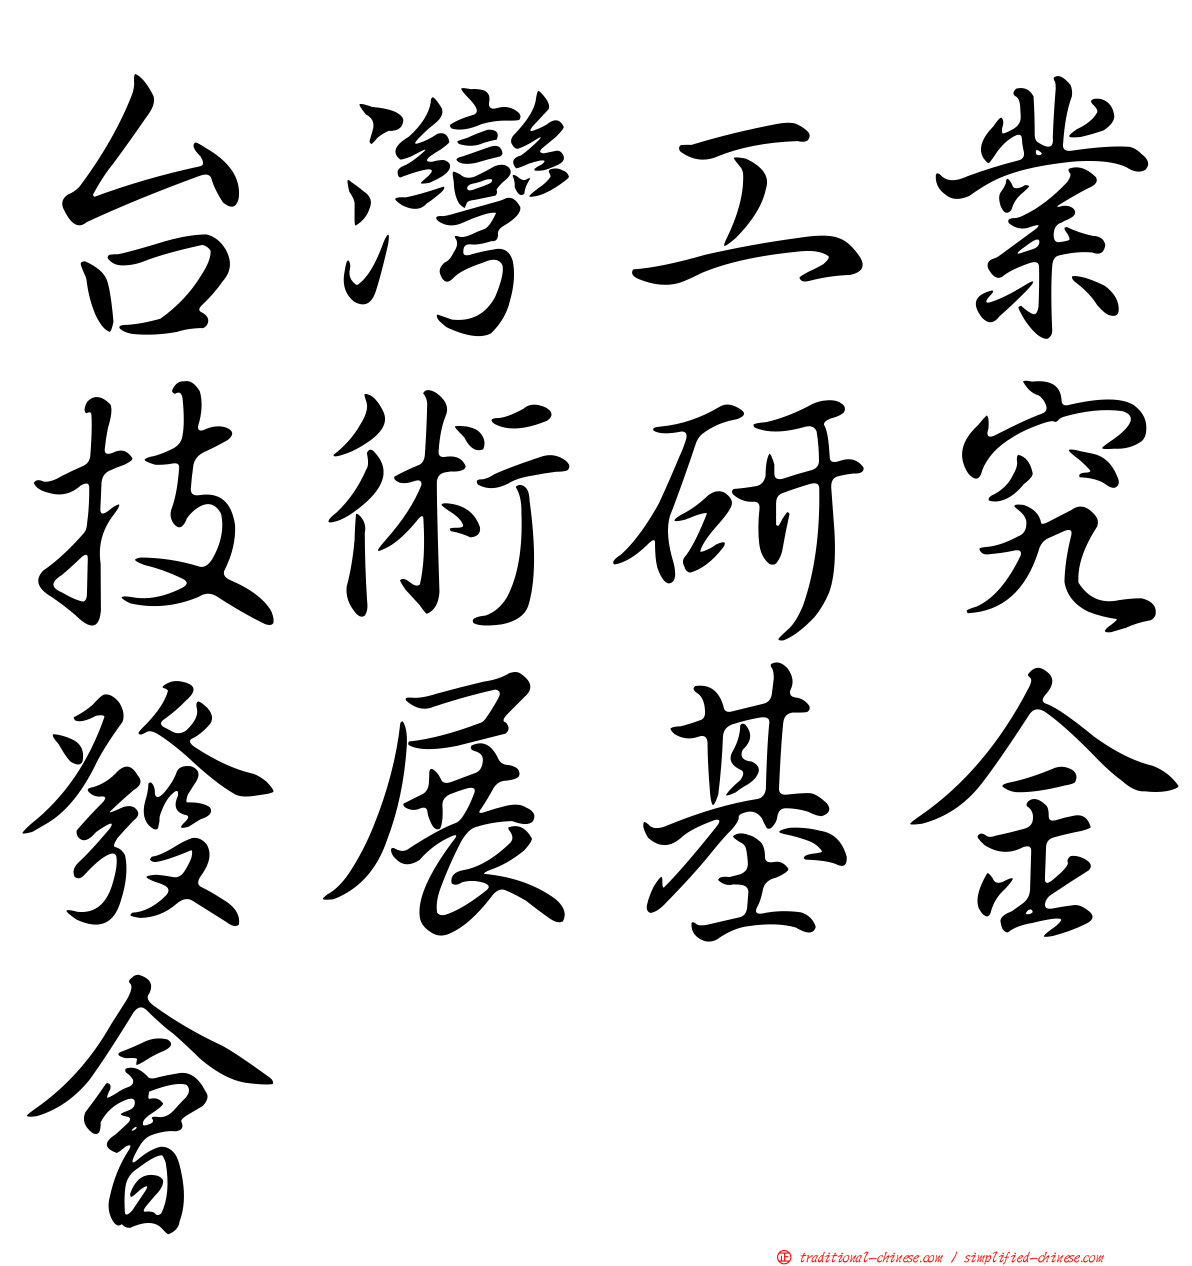 台灣工業
技術研究
發展基金
會
㊣ traditional-chinese.com / simplified-chinese.com